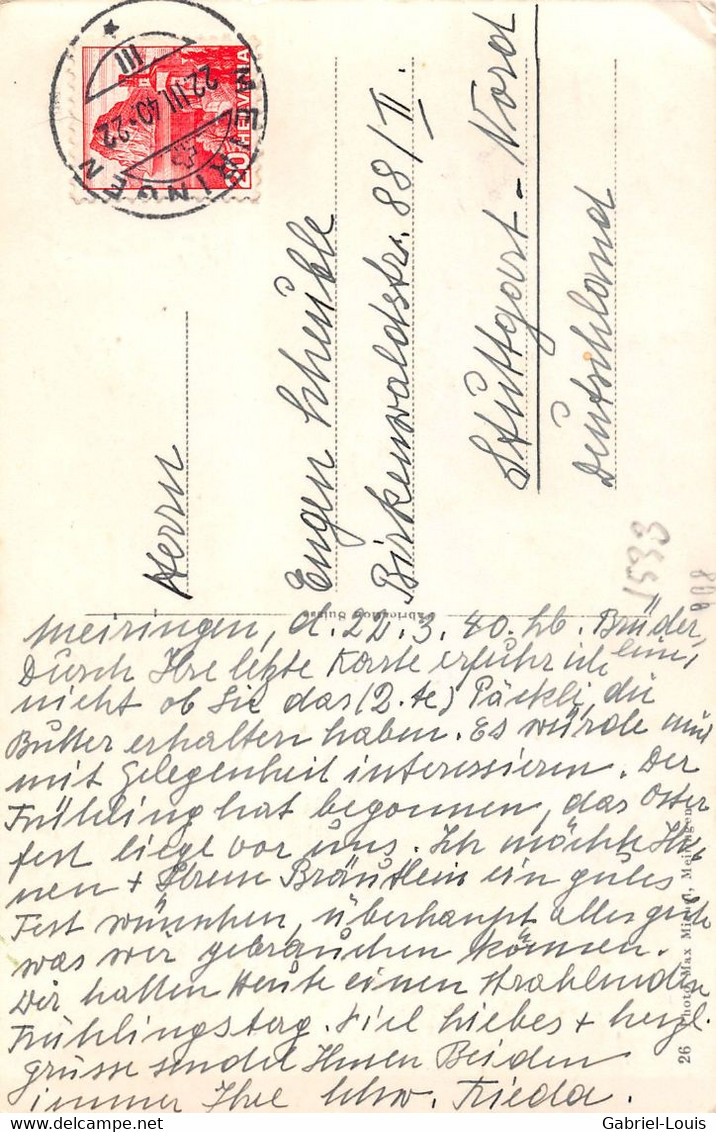 MEIRINGEN
22.III.40-22
III
HELVETIA
20
Herrn
Eugen Scheuble
Birkenwaldstr. 88/II.
Stuttgart-Nord
Deutschland
1533
808
Meiringen, d. 22.3.40. Lb. Brüder,
Durch Ihre letzte Karte erfuhr ich
nicht ob Sie das (2.te) Päckli, die
Butter erhalten haben. Es würde mich
mit Gelegenheit interessieren. Der
Frühling hat begonnen, das Oster
fest liegt vor uns. Ich möchte Ih
nen + Ihrem Bräutlein ein gutes
Fest wünschen, überhaupt alles gute
was wir gebrauchen können.
Wir hatten Heute einen strahlenden
Frühlingstag. Viel liebes + herzl.
grüsse sendet Ihnen Beiden
immer Ihre Schw. Frieda.
26 Photo Max Meiringen
Gabriel-Louis